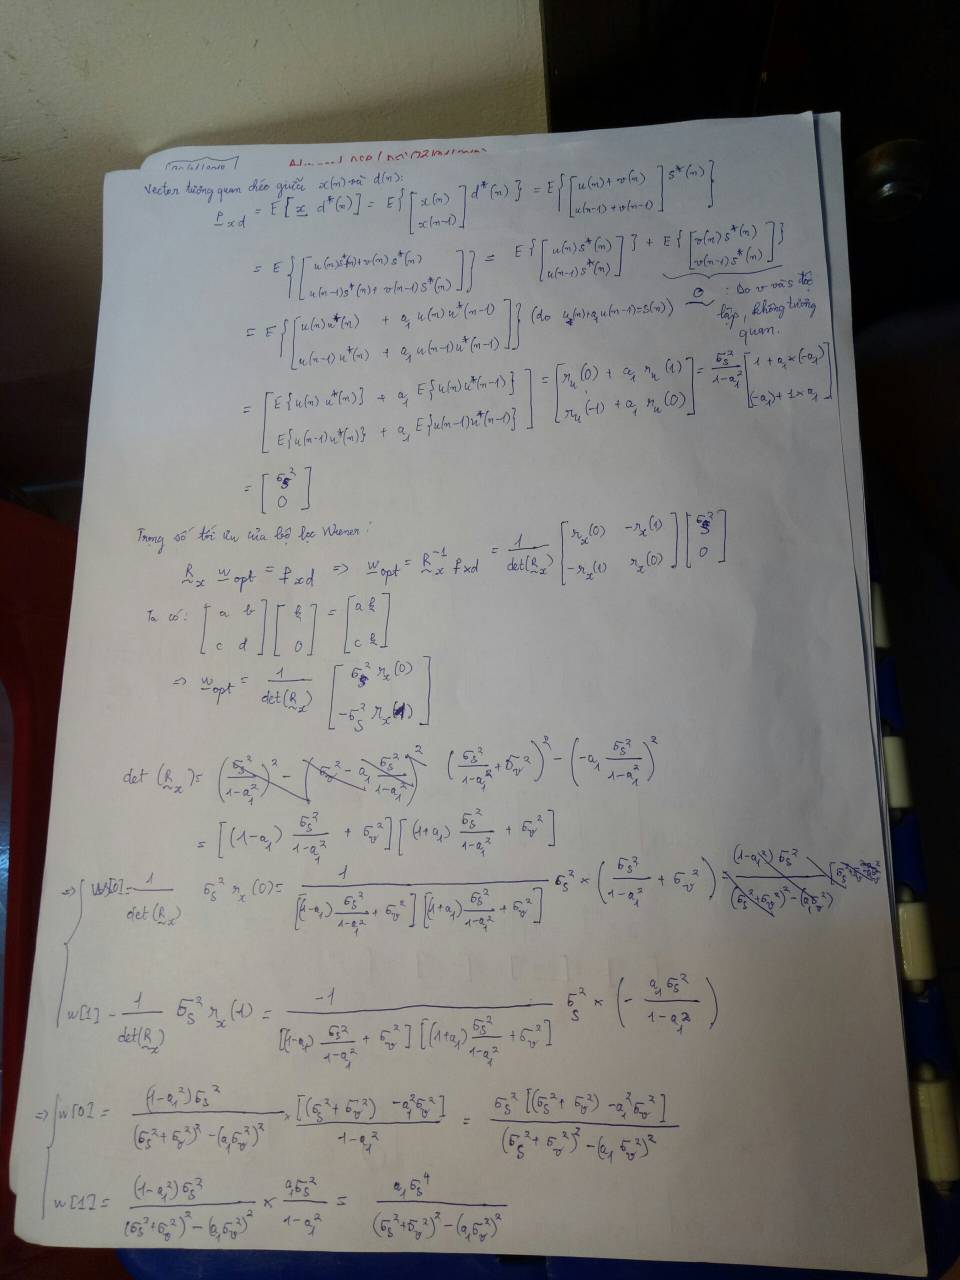 Vector tương quan chéo giữa x(n) và d(n):
p_xd = E[x d*(n)] = E{[x(n) ; x(n-1)] d*(n)} = E{[u(n) + v(n) ; u(n-1) + v(n-1)] s*(n)}
= E{[u(n)s*(n) + v(n)s*(n) ; u(n-1)s*(n) + v(n-1)s*(n)]} = E{[u(n)s*(n) ; u(n-1)s*(n)]} + E{[v(n)s*(n) ; v(n-1)s*(n)]}
0 : Do v và s độc lập, không tương quan.
= E{[u(n)u*(n) + a₁u(n)u*(n-1) ; u(n-1)u*(n) + a₁u(n-1)u*(n-1)]} (do u(n)+a₁u(n-1)=s(n))
= [E{u(n)u*(n)} + a₁E{u(n)u*(n-1)} ; E{u(n-1)u*(n)} + a₁E{u(n-1)u*(n-1)}] = [r_u(0) + a₁r_u(1) ; r_u(-1) + a₁r_u(0)] = σ_s²/(1-a₁²) [1 + a₁×(-a₁) ; (-a₁) + 1×a₁]
= [σ_s² ; 0]
Trọng số tối ưu của bộ lọc Wiener:
R_x w_opt = p_xd => w_opt = R_x⁻¹ p_xd = 1/det(R_x) [r_x(0) -r_x(1) ; -r_x(1) r_x(0)] [σ_s² ; 0]
Ta có: [a b ; c d] [k ; 0] = [ak ; ck]
=> w_opt = 1/det(R_x) [σ_s² r_x(0) ; -σ_s² r_x(1)]
det(R_x) = (σ_s²/(1-a₁²) + σ_v²)² - (-a₁ σ_s²/(1-a₁²))²
= [(1-a₁) σ_s²/(1-a₁²) + σ_v²] [(1+a₁) σ_s²/(1-a₁²) + σ_v²]
=> { w[0] = 1/det(R_x) σ_s² r_x(0) = 1/([(1-a₁) σ_s²/(1-a₁²) + σ_v²] [(1+a₁) σ_s²/(1-a₁²) + σ_v²]) σ_s² × (σ_s²/(1-a₁²) + σ_v²)
w[1] - 1/det(R_x) σ_s² r_x(1) = -1/([(1-a₁) σ_s²/(1-a₁²) + σ_v²] [(1+a₁) σ_s²/(1-a₁²) + σ_v²]) σ_s² × (- a₁σ_s²/(1-a₁²))
=> { w[0] = (1-a₁²)σ_s²/((σ_s²+σ_v²)² - (a₁σ_v²)²) × [(σ_s²+σ_v²) - a₁²σ_v²]/(1-a₁²) = σ_s²[(σ_s²+σ_v²) - a₁²σ_v²]/((σ_s²+σ_v²)² - (a₁σ_v²)²)
w[1] = (1-a₁²)σ_s²/((σ_s²+σ_v²)² - (a₁σ_v²)²) × a₁σ_s²/(1-a₁²) = a₁σ_s⁴/((σ_s²+σ_v²)² - (a₁σ_v²)²)